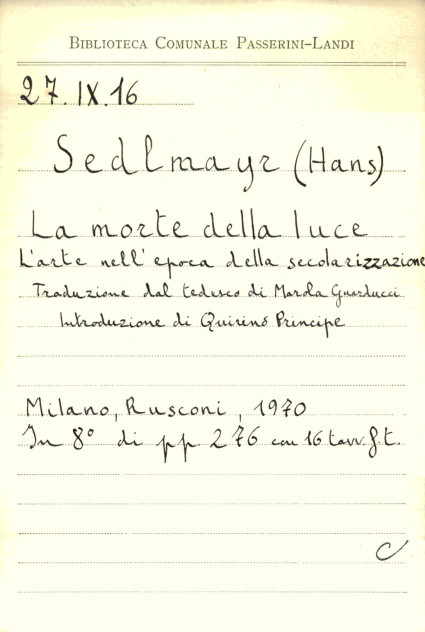 BIBLIOTECA COMUNALE PASSERINI-LANDI
27.IX.16
Sedlmayr (Hans)
La morte della luce
L'arte nell'epoca della secolarizzazione
Traduzione dal tedesco di Marola Guarducci
Introduzione di Quirino Principe
Milano, Rusconi, 1970
In 8° di pp 276 con 16 tavv. f. t.
C